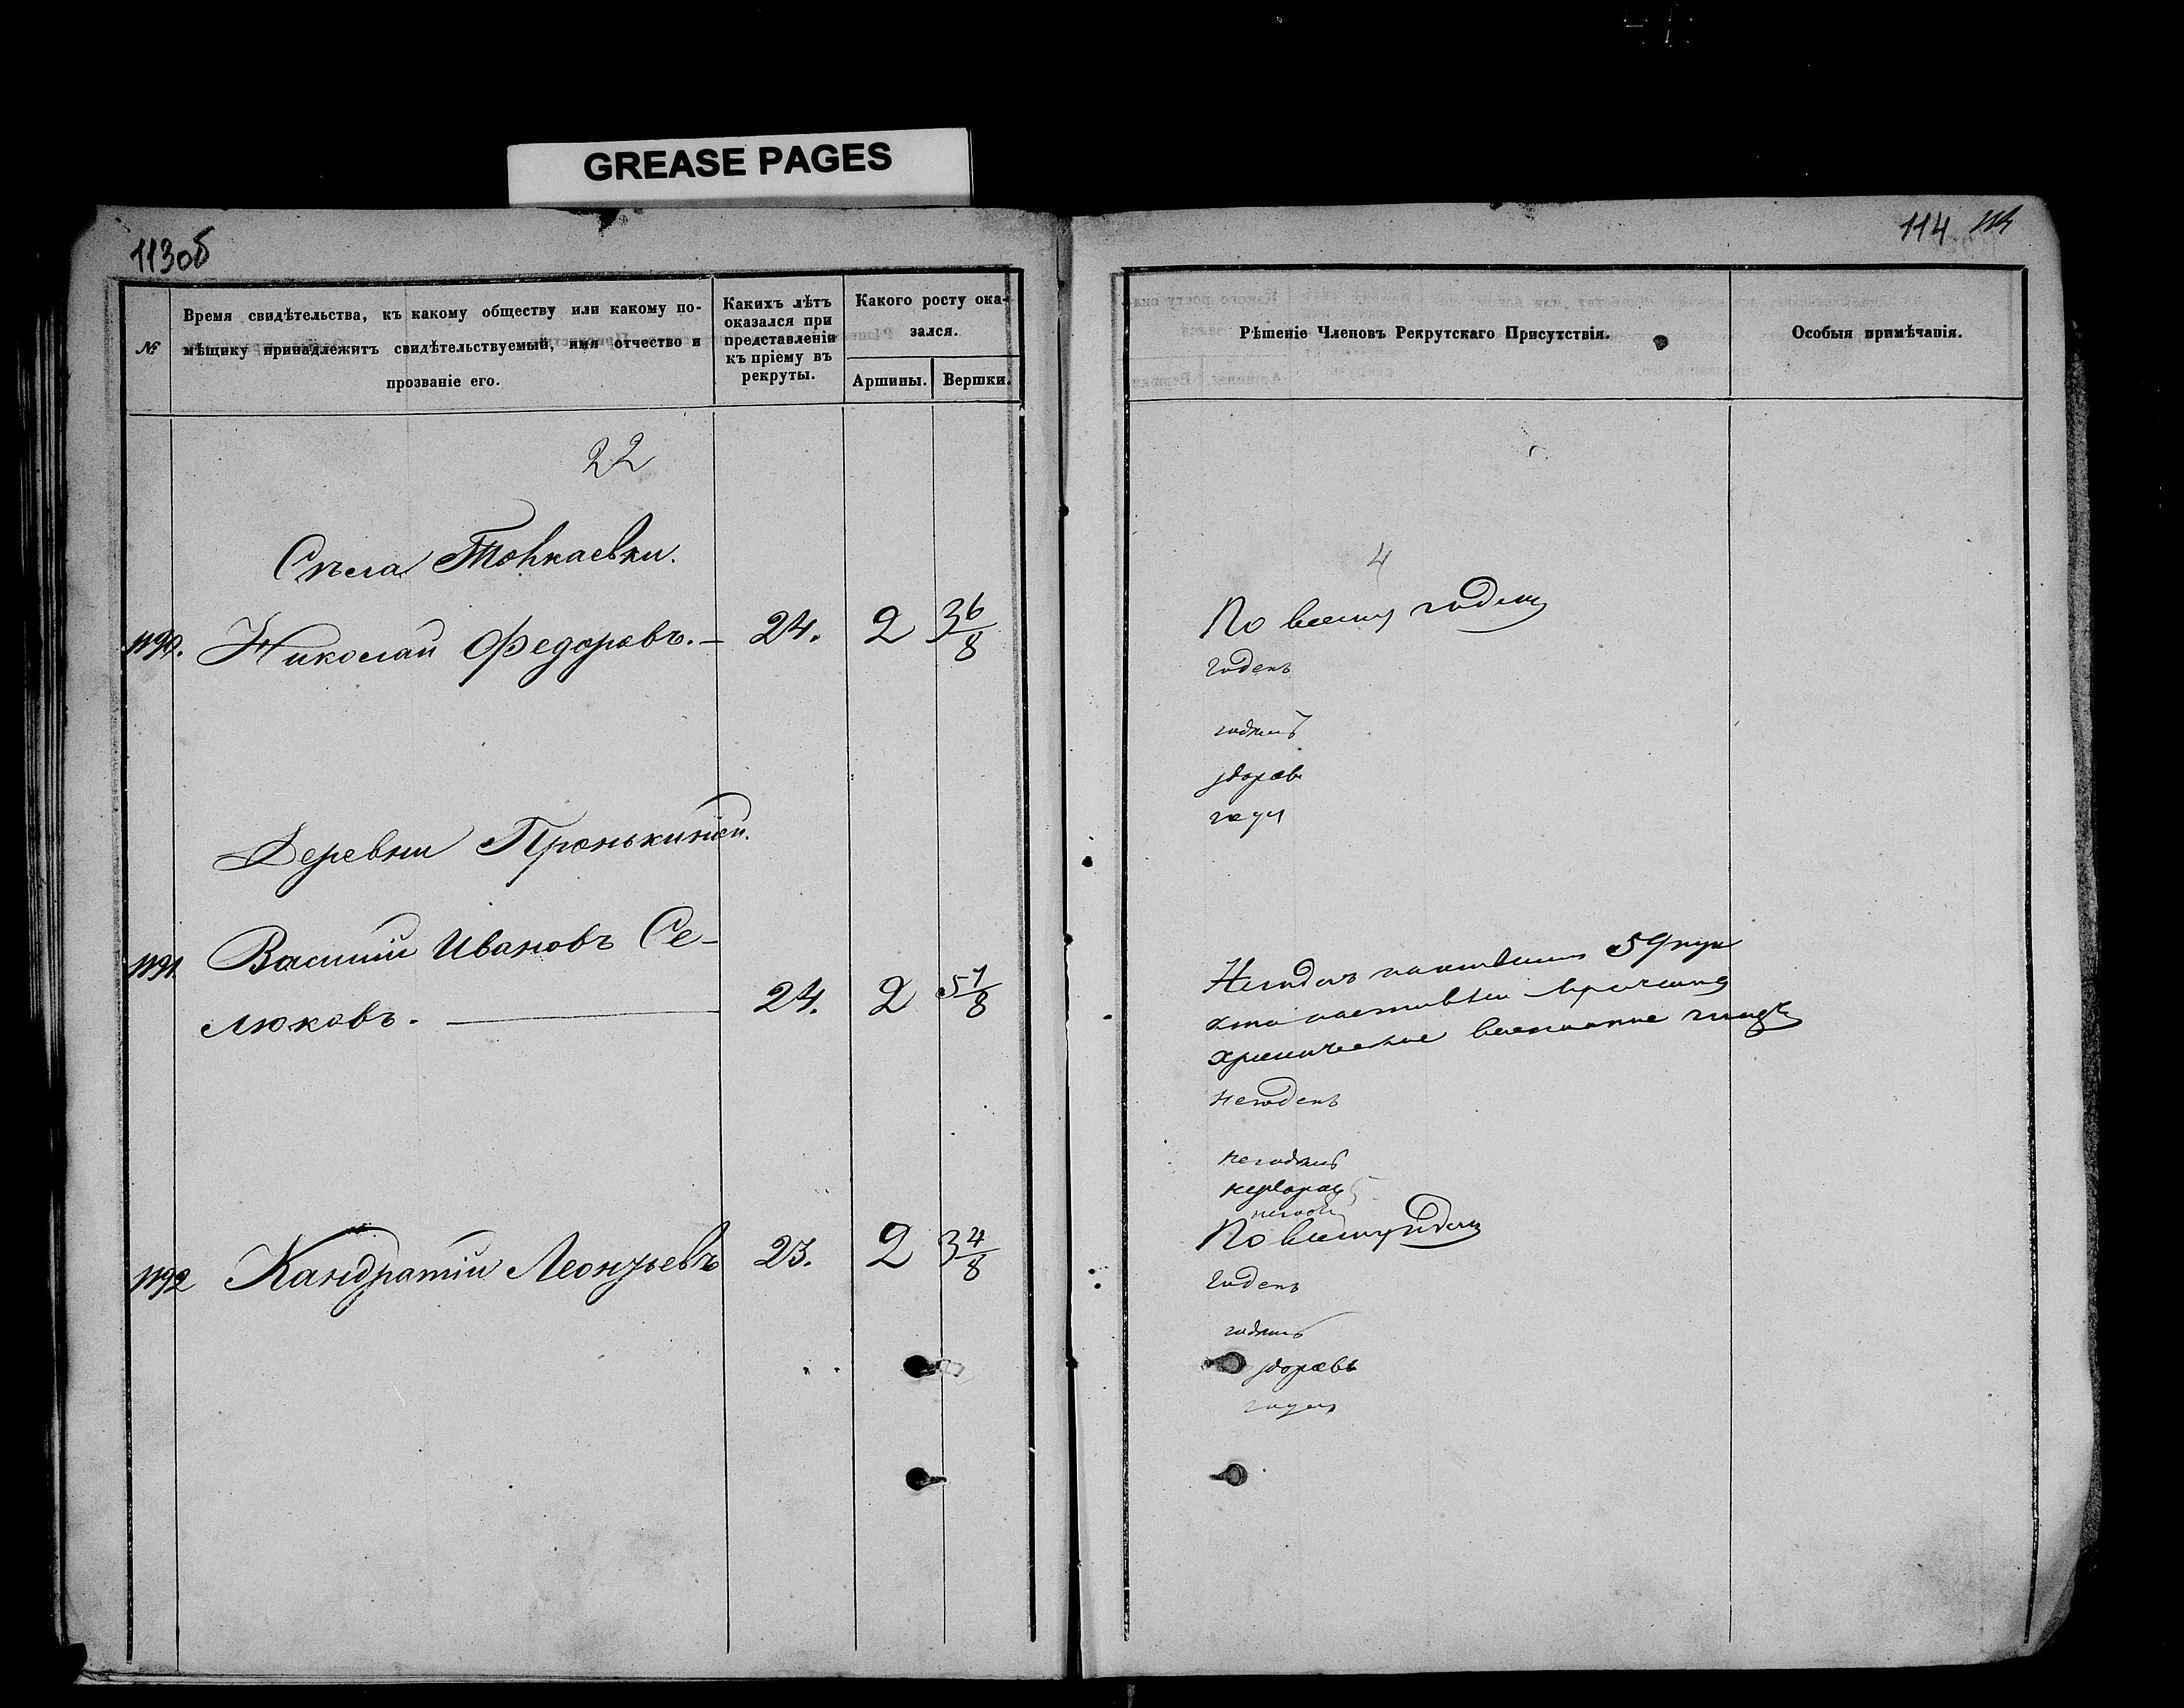 GREASE PAGES
113об
№
Время свидѣтельства, къ какому обществу или какому по-
мѣщику принадлежитъ свидѣтельствуемый, имя отчество и
прозваніе его.
Какихъ лѣтъ
оказался при
представленіи
къ пріему въ
рекруты.
Какого росту ока-
зался.
Аршины.
Вершки.
22
Села
1190. Николай Федоровъ. — 24. 2 3 6/8
Деревни Пронькиной.
1191 Василій Ивановъ Се-
люковъ. — 24. 2 5
1192 Кандратій Леонтьевъ 23. 2 3 4/8
114
Рѣшеніе Членовъ Рекрутскаго Присутствія.
Особыя примѣчанія.
4
По всему годенъ
годенъ
годенъ
здоровъ
Негоденъ 59
хроническое воспаленіе
негоденъ
негоденъ
По всему годенъ
годенъ
годенъ
здоровъ